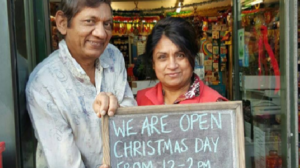 WE ARE OPEN
CHRISTMAS DAY
FROM 12-2PM